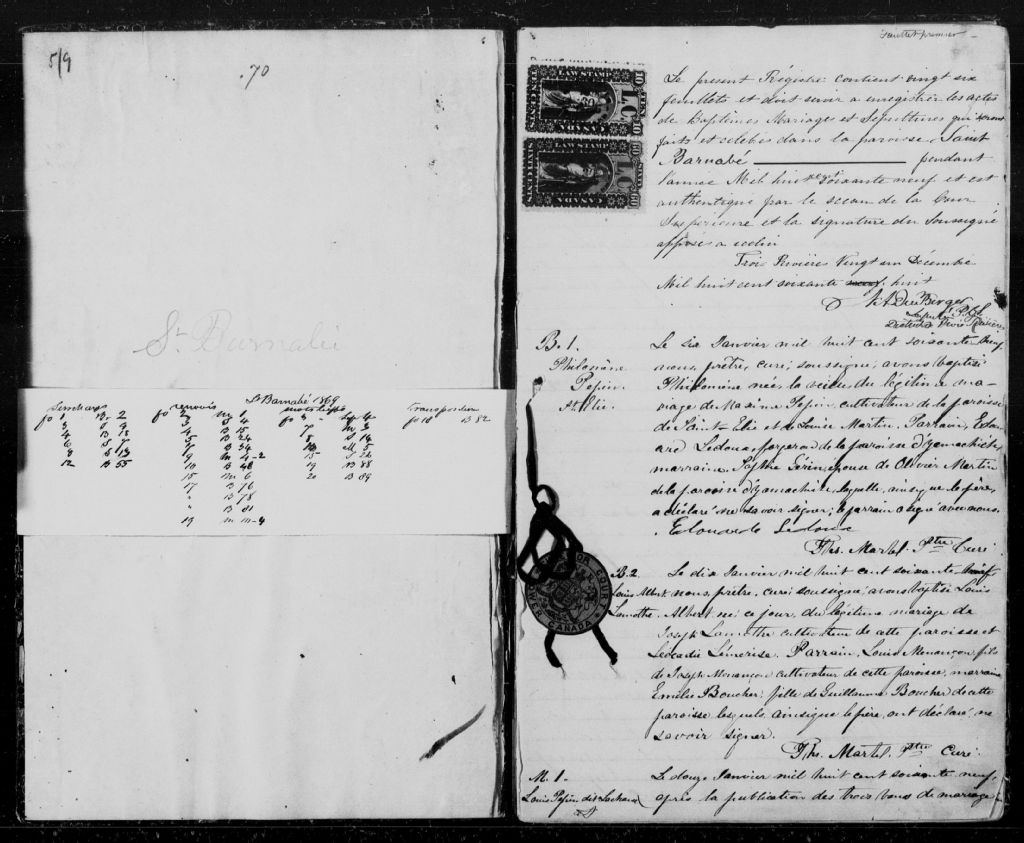 5/9
70
St Barnabé
St Barnabé 1869
surcharges
fo 1 B. 2
3 S 4
4 B 18
6 S 7
8 S 13
12 B 55
renvois
fo 2 M 1
3 S 4
4 B 15
5 B 24
7 B 34
9 M 4-2
10 B 48
15 M 6
17 B 76
" B 78
" B 81
19 M m-9
mots
fo 3
7 M 3
8 S 14
12 M 5
15
19 B 88
20 B 89
transposition
fo 18 B 82
feuillet premier
LAW STAMP
TEN CENTS
CANADA
10
LC
LAW STAMP
SIXTY CENTS
CANADA
60
LC
Le présent Régistre contient vingt six
feuillets et doit servir a enregistrer les actes
de Baptêmes Mariages et Sépultures qui seront
faits et célébrés dans la paroisse Saint
Barnabé pendant
l'année Mil huit cent soixante neuf et est
authentiqué par le sceau de la Cour
Supérieure et la signature du Soussigné
apposé a icelui
Trois Rivières Vingt un Décembre
Mil huit cent soixante huit
District Trois Rivières
B. 1.
Philomène
Pepin
St. Elie.
Le six Janvier mil huit cent soixante neuf
nous, prêtre, curé, soussigné, avons baptisé
Philomène née la veille du légitime ma-
riage de Maxime Pepin, cultivateur de la paroisse
de Saint Elie et de Louise Martin. Parrain, Edou-
ard Ledoux, forgeron de la paroisse d'Yamachiche,
marraine, Sophie épouse de Olivier Martin
de la paroisse d'Yamachiche, laquelle, ainsi que le père,
a déclaré ne savoir signer; le parrain a signé avec nous.
Edouard Ledoux
Ths. Martel. Ptre Curé.
B. 2.
Louis Albert
Lamothe.
Le dix Janvier mil huit cent soixante neuf
nous, prêtre, curé, soussigné, avons baptisé Louis
Albert né ce jour, du légitime mariage de
Joseph Lamothe cultivateur de cette paroisse et
Léocadie Lemerise. Parrain, Louis Menançon, fils
de Joseph Menançon cultivateur de cette paroisse, marraine
Emilie Boucher, fille de Guillaume Boucher de cette
paroisse lesquels, ainsi que le père, ont déclaré ne
savoir signer.
Ths. Martel. Ptre Curé.
M. 1.
Louis Pepin dit Lachance
&
Le douze Janvier mil huit cent soixante neuf,
après la publication des trois bans de mariage